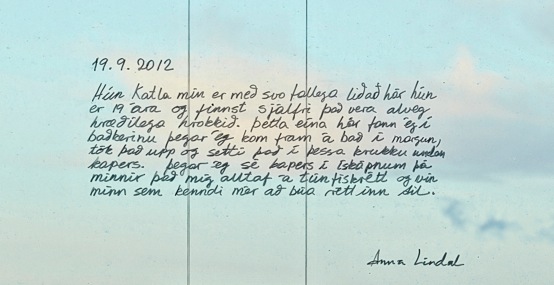 19.9.2012
Hún Katla mín er með svo fallega liðað hár hún
er 19 ára og finnst sjálfri það vera alveg
hræðilega krokkið. þetta eina hár fann ég í
baðkerinu þegar ég kom fram á bað í morgun,
tók það upp og setti það í þessa krukku undan
kapers. Þegar ég sé kapers í ísskápnum þá
minnir það mig alltaf á túnfiskrétt og vin
minn sem kenndi mér að búa réttinn til.
Anna Líndal